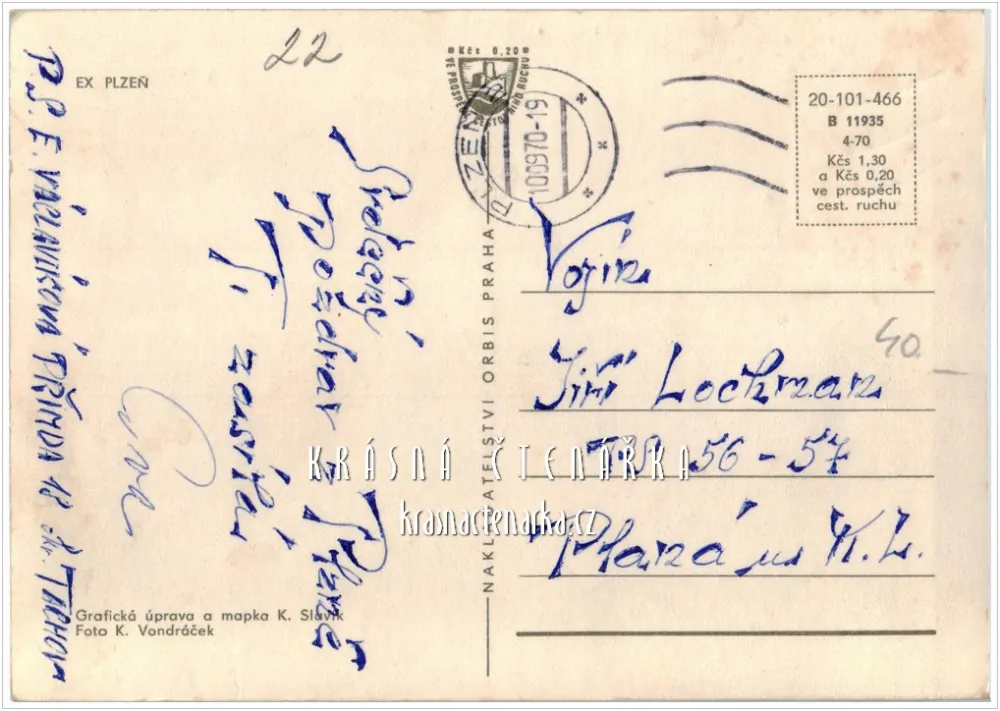 22
EX PLZEŇ
Kčs 0,20
VE PROSPĚCH CESTOVNÍHO RUCHU
PLZEŇ
100970-19
20-101-466
B 11935
4-70
Kčs 1,30
a Kčs 0,20
ve prospěch
cest. ruchu
Srdečný
Pozdrav z Plzně
Ti zasílá
Eva
P.S. E. VÁCLAVÍKOVÁ PŘIMDA 18 TACHOV
NAKLADATELSTVÍ ORBIS PRAHA
Vojín
Jiří Lochman
PS 56-57
Planá u K.L.
40
KRÁSNÁ ČTENÁŘKA
krasnactenarka.cz
Grafická úprava a mapka K. Slavík
Foto K. Vondráček